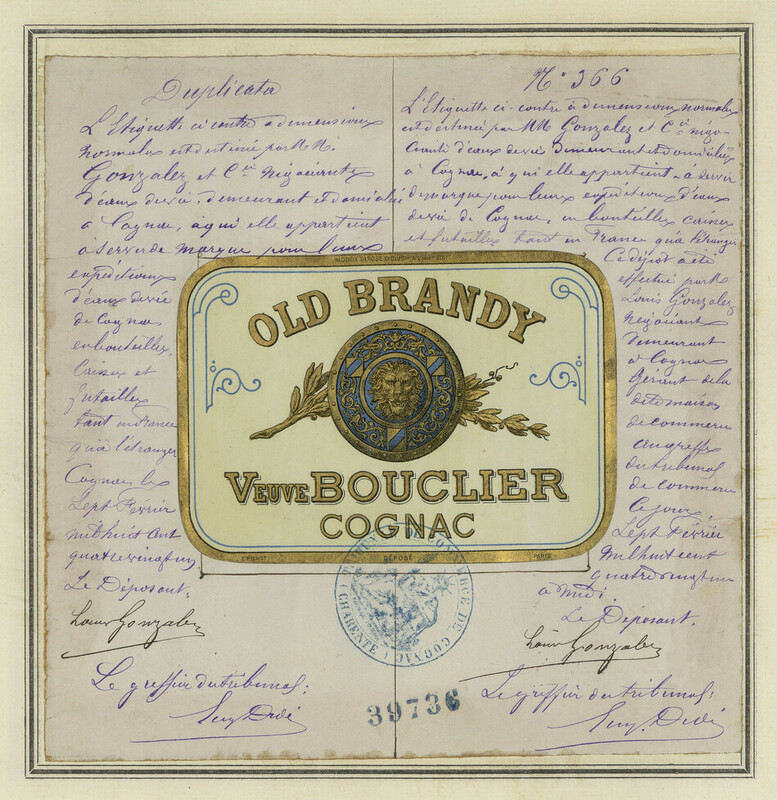 Duplicata
L'Etiquette ci contre a demensioux
normalex est destiné par M M.
Gonzalez et Cie Negociants
d'eaux devie, demeurant et domicilié
a Cognac, aqui elle appartient
a servir de marque pour leurs
expeditioux
d'eaux devie
de Cognac
en bouteillex,
Caisses et
futaillex
tant en France
qu'a l'étranger
Cognac le
Sept Février
mil huit cent
quatrevingt un
Le Déposant:
Louis Gonzalez
Le greffier du tribunal;
N° 366
L'Etiquette ci-contre à demensioux normalex
est destinée par MM Gonzalez et Cie négo-
ciants d'eaux devie demeurant et domiciliés
à Cognac, à qui elle appartient à servir
de marque pour leurs expeditioux d'eaux
devie de Cognac, en bouteillex caisses
et futaillex tant en France qu'a l'étranger
Ce dépot a été
effectué par M
Louis Gonzalez
Negociant
demeurant
a Cognac
Gérant de la
dite maison
de commerce
au greffe
du tribunal
de commerce
Ce jour,
Sept Février
Mil huit cent
quatrevingt un
a Midi.
Le Déposant.
Louis Gonzalez
Le greffier du tribunal;
OLD BRANDY
VEUVE BOUCLIER
COGNAC
DÉPOSÉ
PARIS
TRIBUNAL DE COMMERCE DE COGNAC (CHARENTE)
39736